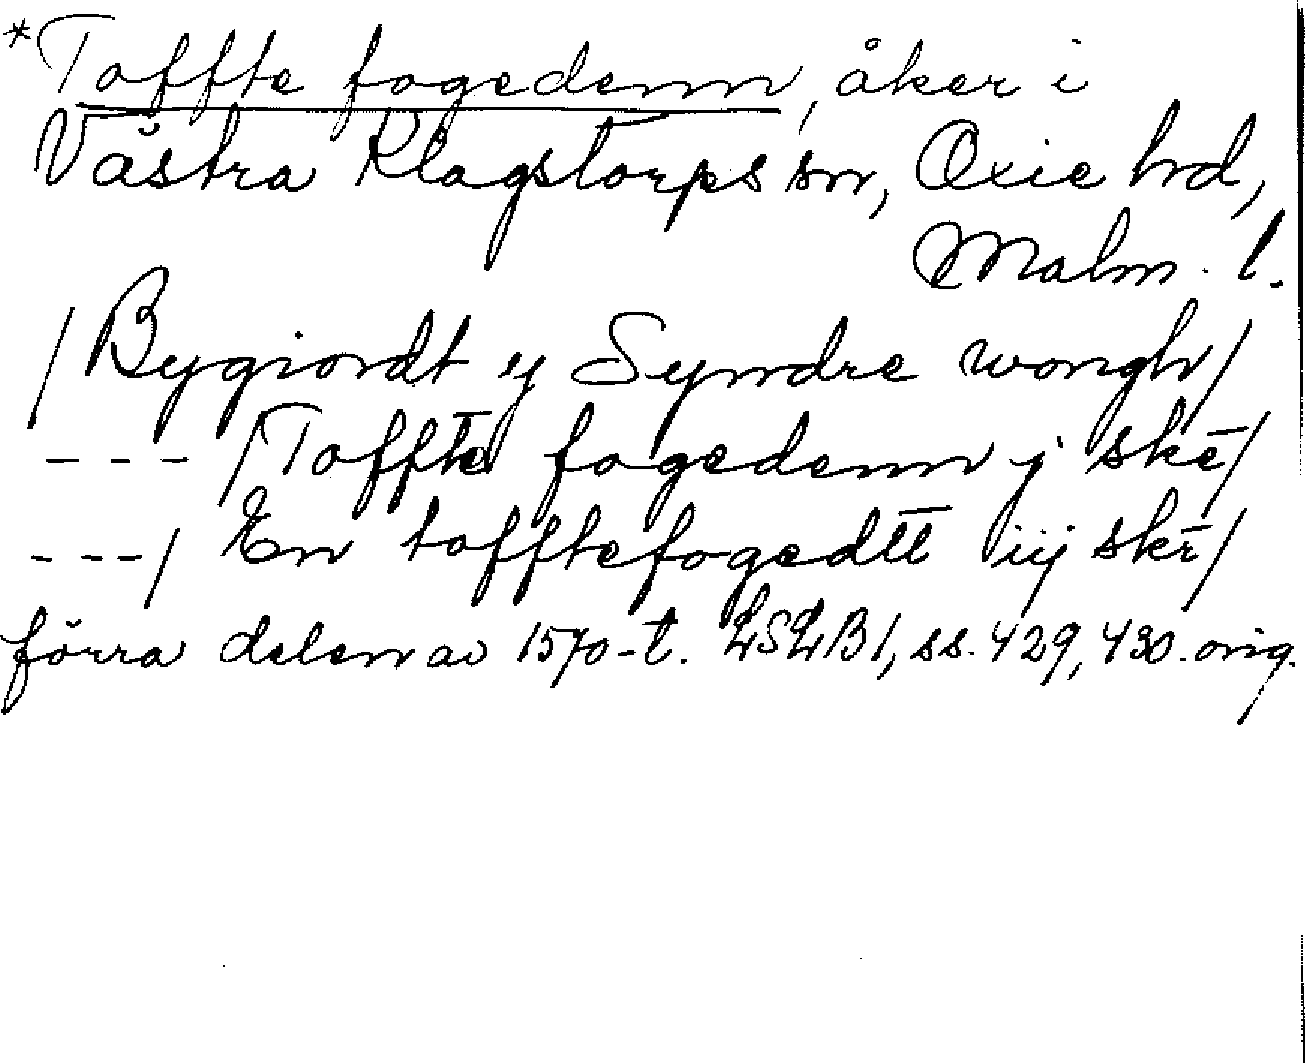 *Toffte fogedenn, åker i
Västra Klagstorps sn, Oxie hd,
Malm. l.
/Bygiordt y Syndre wongh/
--- /Toffte fogedenn j ske/
---/ En tofftefogedtt iij ske/
förra delen av 1570-t. LSLB1, ss. 429, 430. orig.